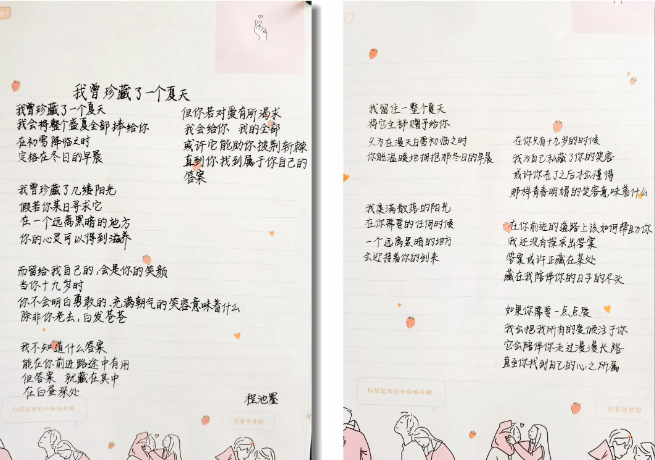 我曾珍藏了一个夏天
我曾珍藏了一个夏天
我会将整个盛夏全部捧给你
在初雪降临之时
定格在冬日的早晨
我曾珍藏了几缕阳光
假若你某日寻求它
在一个远离黑暗的地方
你的心灵可以得到滋养
而留给我自己的,会是你的笑颜
当你十九岁时
你不会明白勇敢的、充满朝气的笑容意味着什么
除非你老去,白发苍苍
我不知道什么答案
能在你前进路途中有用
但答案 就藏在其中
在白昼深处
但你若对爱有所渴求
我会给你 我的全部
或许它能助你披荆斩棘
直到你找到属于你自己的
答案
程池墨
我留住一整个夏天
将它全部赠予给你
只为在漫天白雪初临之时
你能温暖地拥抱那冬日的早晨
我集满散落的阳光
在你需要的任何时候
一个远离黑暗的地方
会迎接着你的到来
在你只有十九岁的时候
我为自己私藏了你的笑容
或许你老了之后才会懂得
那样青春明媚的笑容意味着什么
在你前进的道路上该如何帮助你
我还没有探求出答案
答案或许正藏在某处
藏在我陪伴你的日子的尽头
如果你需要一点点爱
我会把我所有的爱倾注于你
它会陪伴你走过漫漫长路
直到你找到自己的心之所属